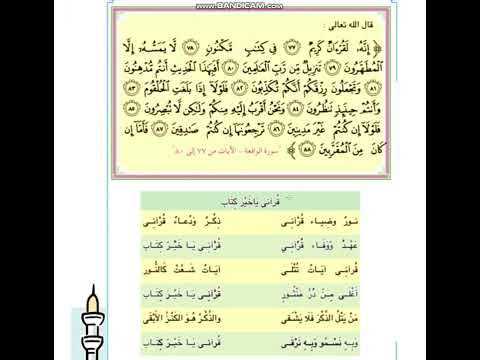 www.BANDICAM.com
قال الله تعالى :
﴿ إِنَّهُۥ لَقُرْءَانٌ كَرِيمٌ ٧٧ فِى كِتَٰبٍ مَّكْنُونٍ ٧٨ لَّا يَمَسُّهُۥٓ إِلَّا
ٱلْمُطَهَّرُونَ ٧٩ تَنزِيلٌ مِّن رَّبِّ ٱلْعَٰلَمِينَ ٨٠ أَفَبِهَٰذَا ٱلْحَدِيثِ أَنتُم مُّدْهِنُونَ
٨١ وَتَجْعَلُونَ رِزْقَكُمْ أَنَّكُمْ تُكَذِّبُونَ ٨٢ فَلَوْلَآ إِذَا بَلَغَتِ ٱلْحُلْقُومَ ٨٣
وَأَنتُمْ حِينَئِذٍ تَنظُرُونَ ٨٤ وَنَحْنُ أَقْرَبُ إِلَيْهِ مِنكُمْ وَلَٰكِن لَّا تُبْصِرُونَ ٨٥
فَلَوْلَآ إِن كُنتُمْ غَيْرَ مَدِينِينَ ٨٦ تَرْجِعُونَهَآ إِن كُنتُمْ صَٰدِقِينَ ٨٧ فَأَمَّآ إِن
كَانَ مِنَ ٱلْمُقَرَّبِينَ ٨٨ ﴾ "سورة الواقعة - الآيات من ٧٧ إلى
قُرآني يَا خَيْرَ كِتَاب
نـورٌ وضِيـاءٌ قُـرْآنـي ذِكْـرٌ وَدُعـاءٌ قُـرْآنـي
عَهْـدٌ وَوَفـاءٌ قُـرْآنـي قُرْآنـي يـا خَيْـرَ كِتاب
قُرآنـي آيـاتٌ تُتْلـى آيـاتٌ شَعَّتْ كَالنُّـور
أغْلـى مِـنْ دُرٍّ مَنْثُـور قُرْآنـي يـا خَيْـرَ كِتاب
مَنْ يَتْلُ الذِّكْرَ فَلا يَشْقى والذِّكْرُ هُـوَ الكَنْزُ الأبْقى
وبِـهِ نَسْمُـو وَبِـهِ نَرْقـى قُرْآنـي يـا خَيْـرَ كِتاب